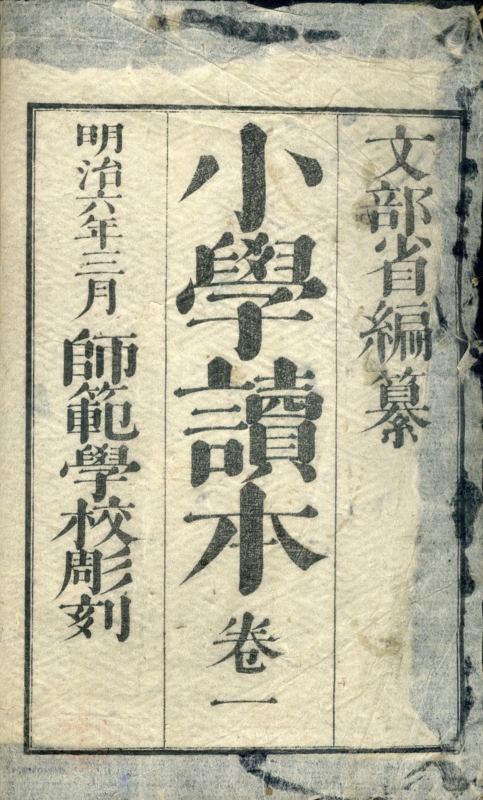 文部省編纂
小學讀本 卷一
明治六年三月 師範學校彫刻